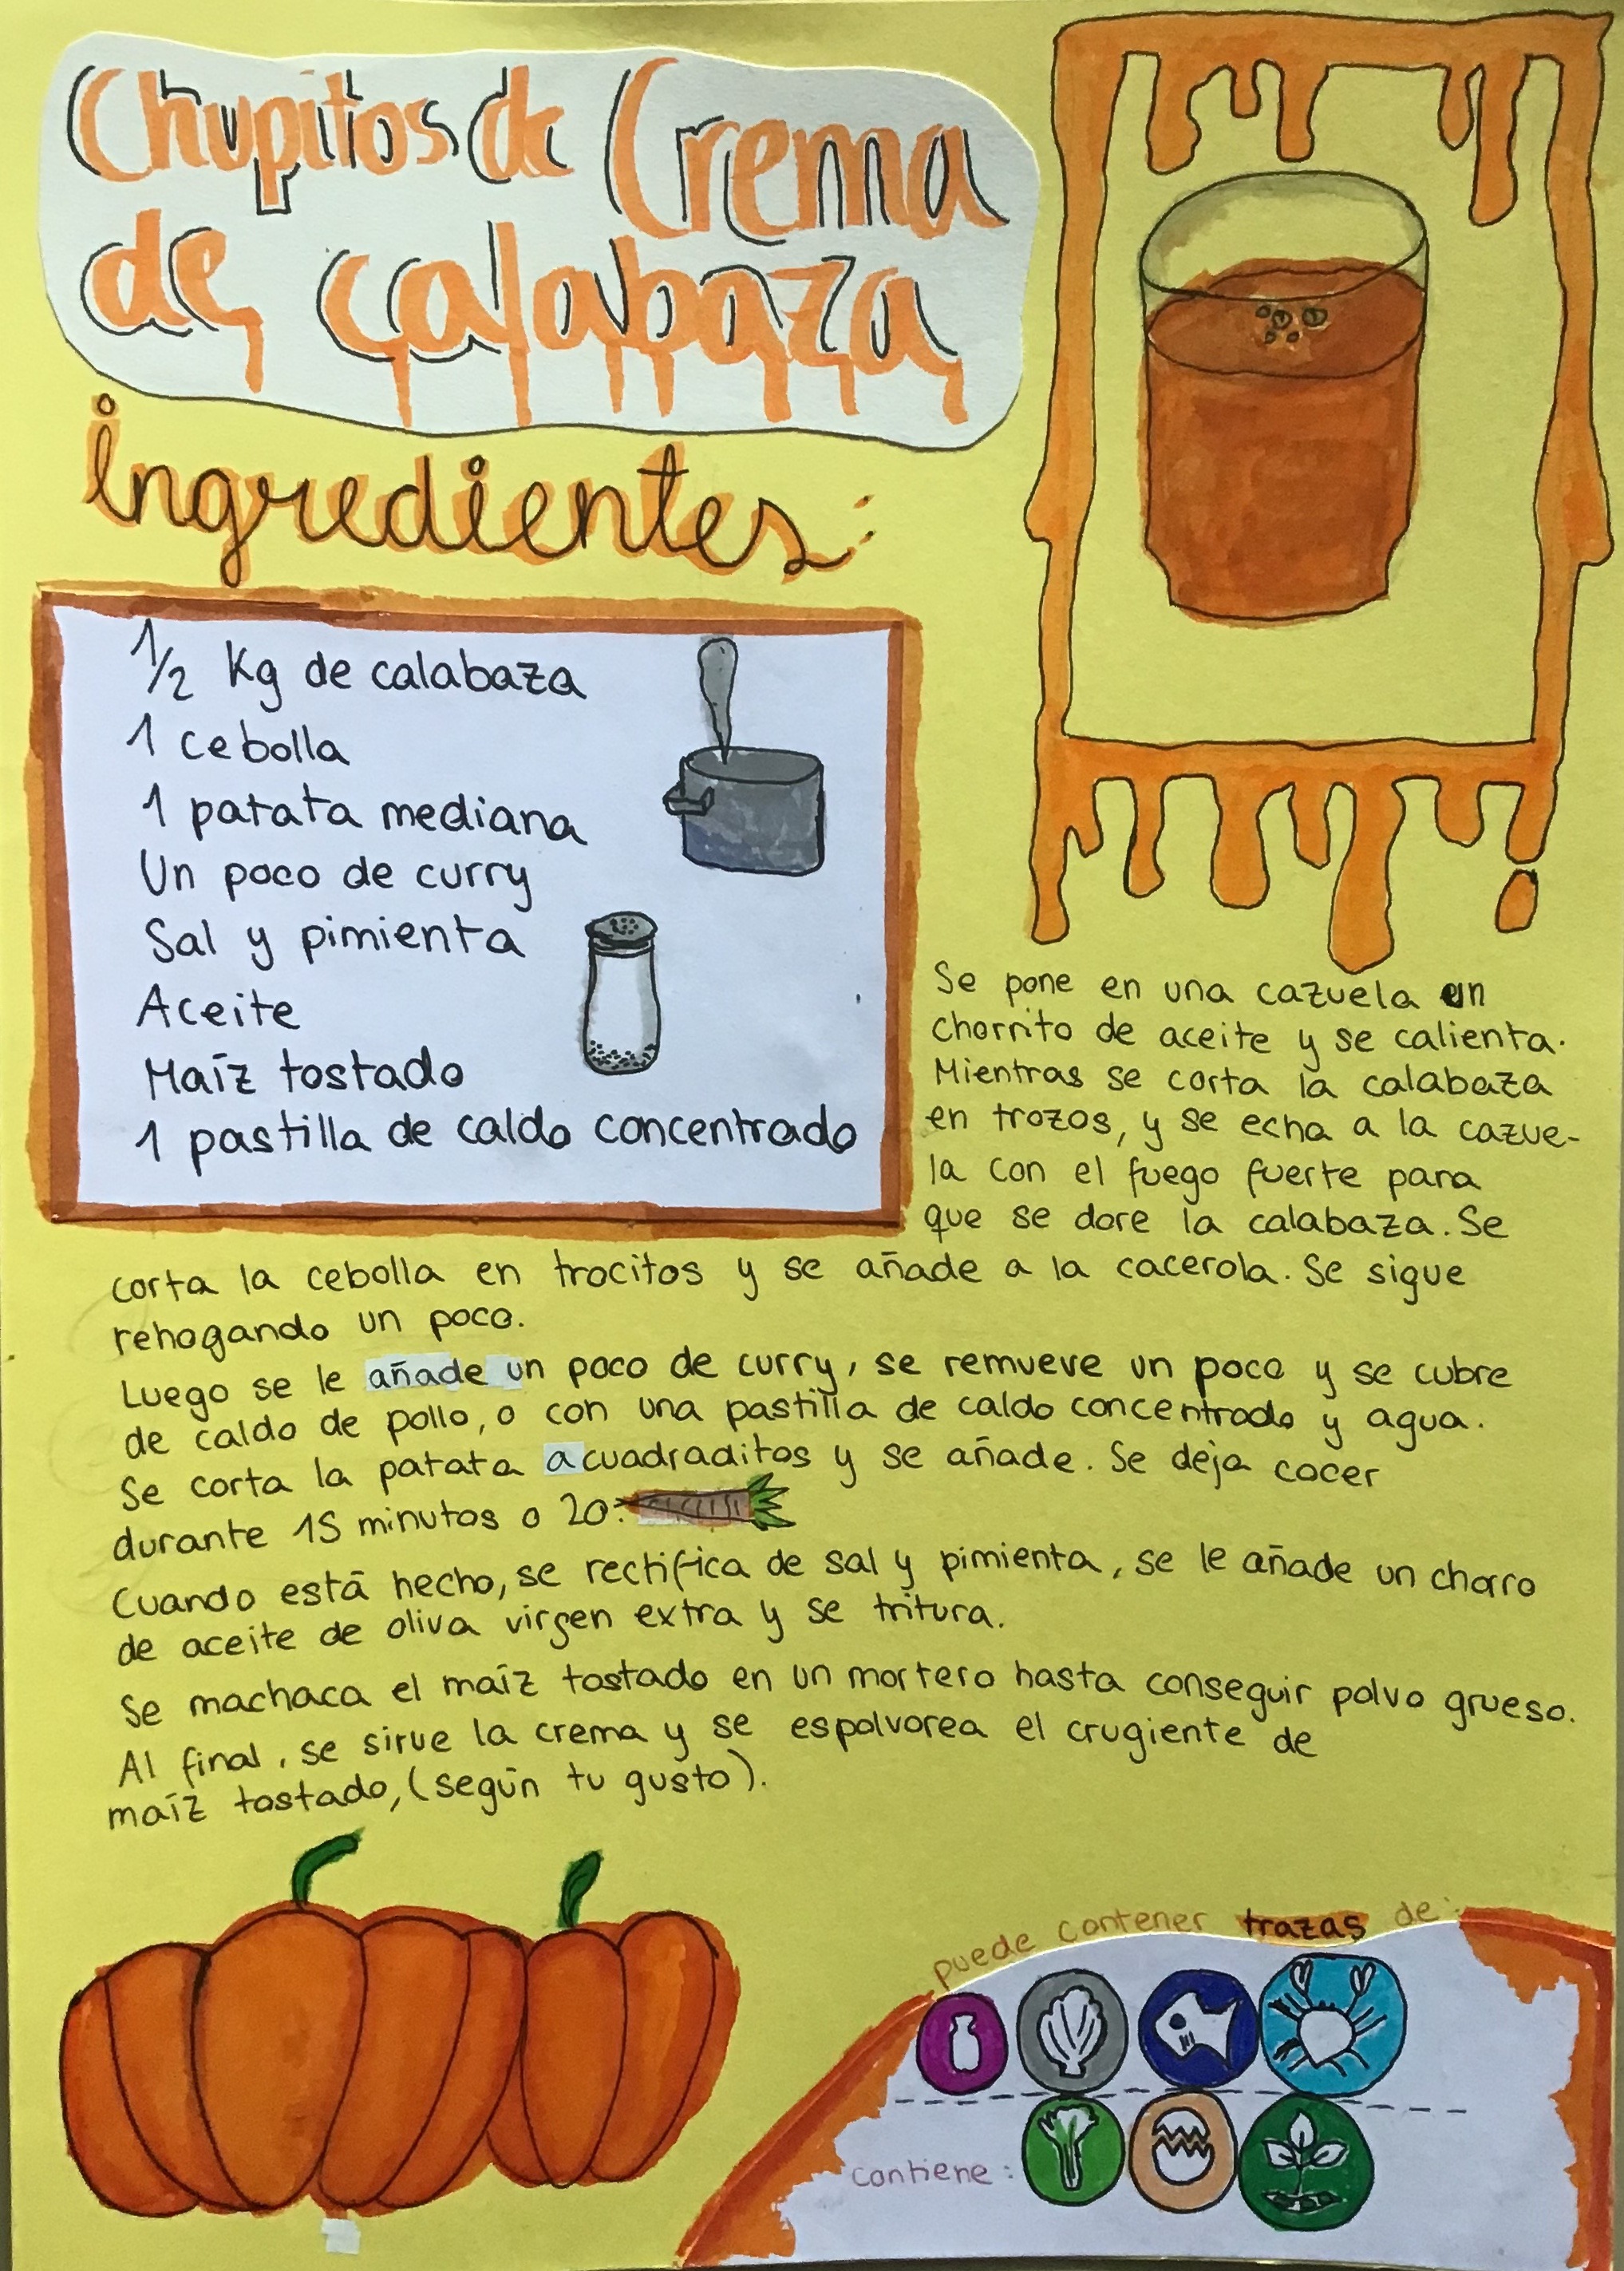 Chupitos de Crema
de calabaza
ingredientes:
1/2 Kg de calabaza
1 cebolla
1 patata mediana
Un poco de curry
Sal y pimienta
Aceite
Maíz tostado
1 pastilla de caldo concentrado
Se pone en una cazuela un
chorrito de aceite y se calienta.
Mientras se corta la calabaza
en trozos, y se echa a la cazue-
la con el fuego fuerte para
que se dore la calabaza. Se
corta la cebolla en trocitos y se añade a la cacerola. Se sigue
rehogando un poco.
Luego se le añade un poco de curry, se remueve un poco y se cubre
de caldo de pollo, o con una pastilla de caldo concentrado y agua.
Se corta la patata a cuadraditos y se añade. Se deja cocer
durante 15 minutos o 20.
Cuando está hecho, se rectifica de sal y pimienta, se le añade un chorro
de aceite de oliva virgen extra y se tritura.
Se machaca el maíz tostado en un mortero hasta conseguir polvo grueso.
Al final, se sirve la crema y se espolvorea el crugiente de
maíz tostado, (según tu gusto).
puede contener trazas de:
contiene: